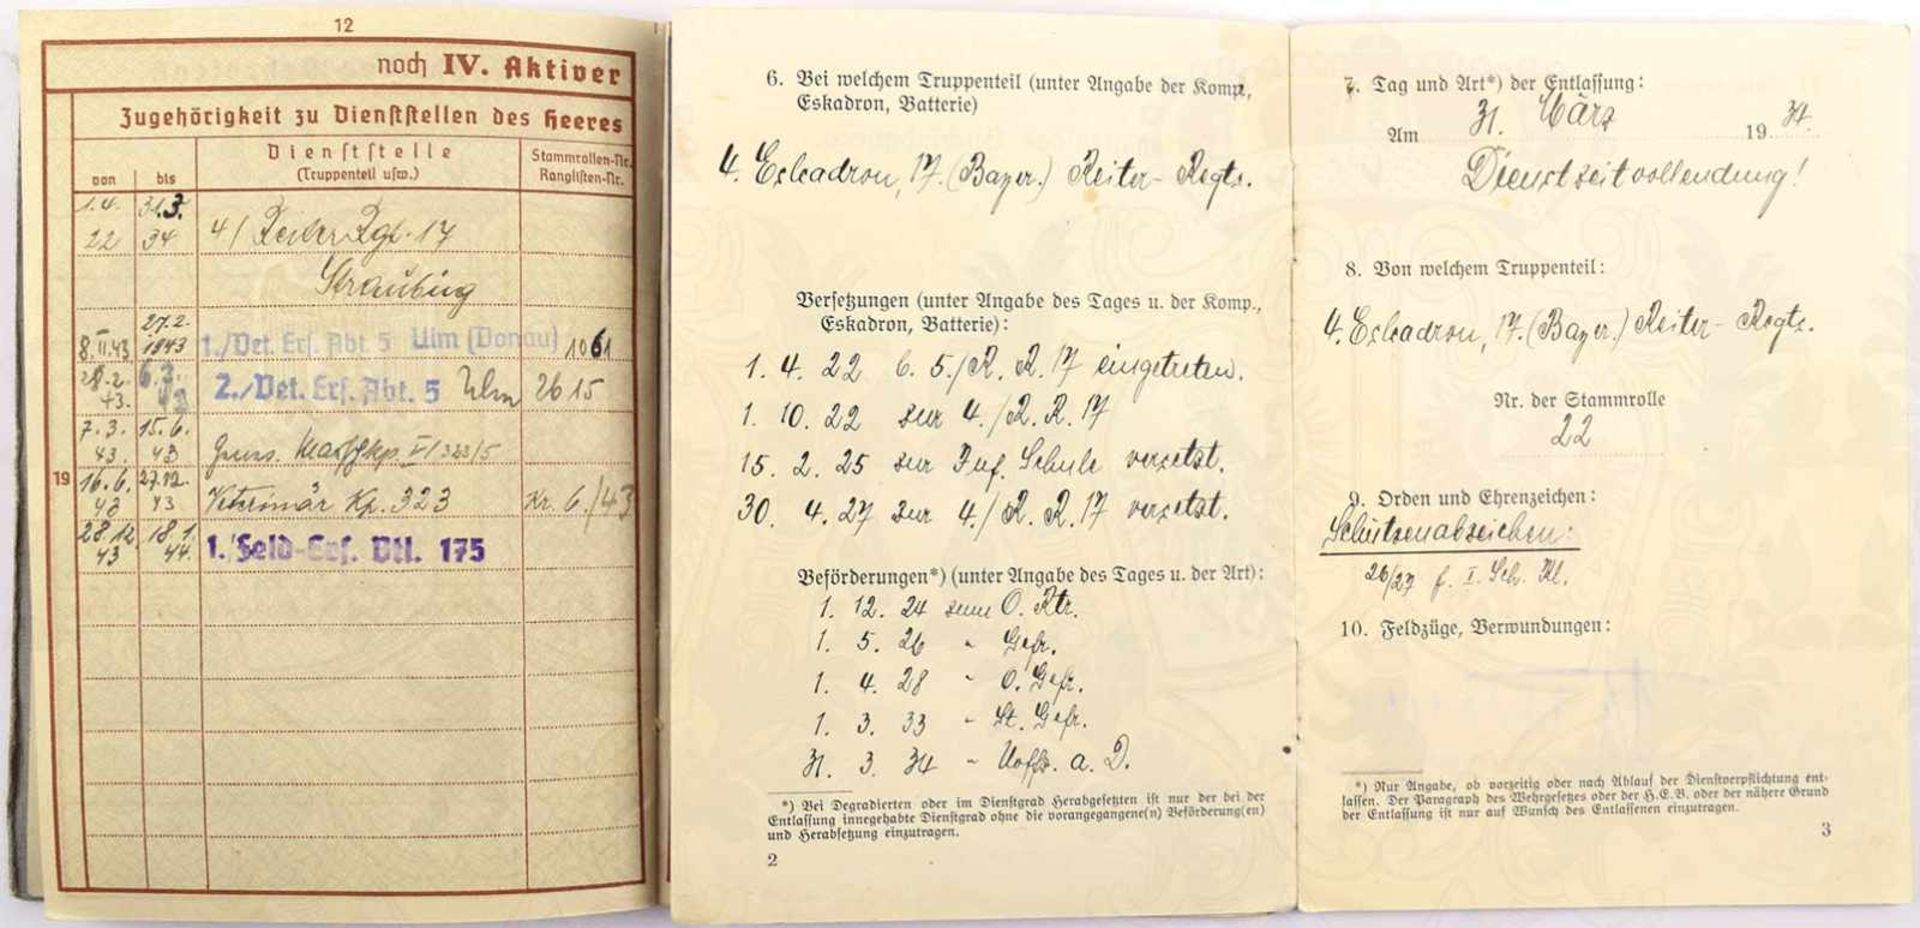 12
noch IV. Aktiver
Zugehörigkeit zu Dienststellen des Heeres
von
bis
Dienststelle
(Truppenteil usw.)
Stammrollen-Nr.
Ranglisten-Nr.
1.4. 31.3.
22 34 4/ Reiter Rgt. 17
Straubing
27.2.
8.II.43 1943 1./Vet. Ers. Abt. 5 Ulm (Donau) 1061
28.2.
43. 2./Vet. Ers. Abt. 5 Ulm 2615
7.3. 15.6.
43. 43 323/5
19 16.6. 27.12.
43 43 Veterinär Kp. 323 Kr. 6./43
28.12. 18.1.
43 44. 1. Feld-Ers. Btl. 175
6. Bei welchem Truppenteil (unter Angabe der Komp.,
Eskadron, Batterie)
4. Eskadron, 17. (Bayer.) Reiter-Regts.
Versetzungen (unter Angabe des Tages u. der Komp.,
Eskadron, Batterie):
1. 4. 22 b. 5./R. R. 17 eingetreten.
1. 10. 22 zur 4./R. R. 17
15. 2. 25 zur Inf. Schule versetzt.
30. 4. 27 zur 4./R. R. 17 versetzt.
Beförderungen*) (unter Angabe des Tages u. der Art):
1. 12. 24 zum O. Rtr.
1. 5. 26 " Gefr.
1. 4. 28 " O. Gefr.
1. 3. 33 " St. Gefr.
31. 3. 34 " Uoffz. a. D.
*) Bei Degradierten oder im Dienstgrad Herabgesetzten ist nur der bei der
Entlassung innegehabte Dienstgrad ohne die vorangegangene(n) Beförderung(en)
und Herabsetzung einzutragen.
2
7. Tag und Art*) der Entlassung:
Am 31. März 19 34.
Dienstzeitvollendung!
8. Von welchem Truppenteil:
4. Eskadron, 17. (Bayer.) Reiter-Regts.
Nr. der Stammrolle
22
9. Orden und Ehrenzeichen:
Schützenabzeichen:
26/27 f. I. Sch. Kl.
10. Feldzüge, Verwundungen:
*) Nur Angabe, ob vorzeitig oder nach Ablauf der Dienstverpflichtung ent-
lassen. Der Paragraph des Wehrgesetzes oder der H.E.B. oder der nähere Grund
der Entlassung ist nur auf Wunsch des Entlassenen einzutragen.
3